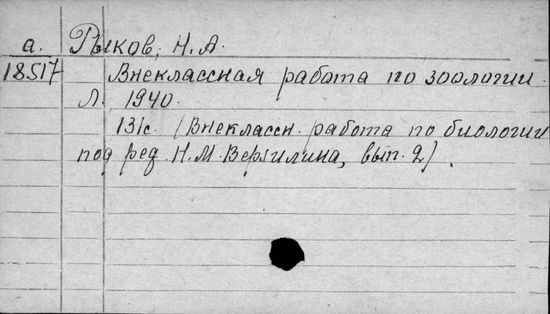 а. Рыков, Н. А.
18517 Внеклассная работа по зоологии.
Л. 1940.
131с. (Внеклассн. работа по биологии
под ред. Н. М. Верзилина, вып. 2).